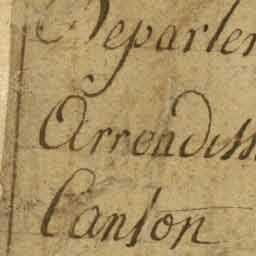 Départem
Arrondiss
Canton